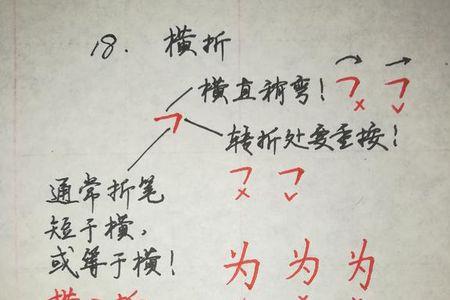 18. 横折
横直稍弯!
转折处要重按!
通常折笔
短于横,
或等于横!
为为为
横>折